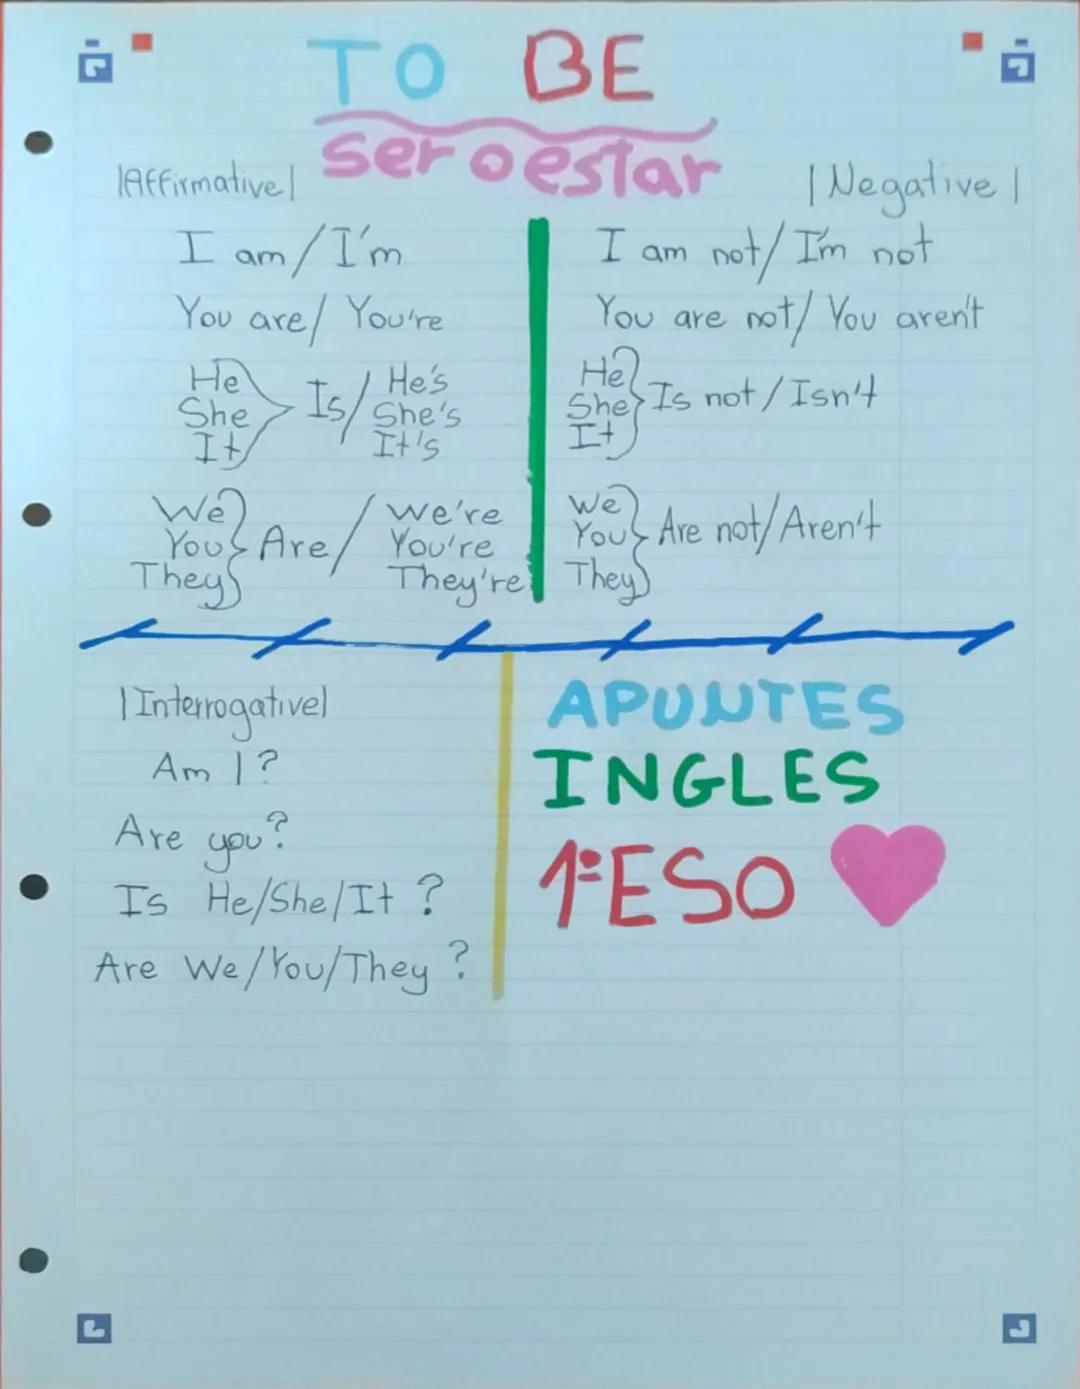 TO BE
ser o estar
|Affirmative|
I am/I'm
You are/ You're
He
She
It
Is/
He's
She's
It's
We
You
They
Are/
We're
You're
They're
|Negative|
I am not/I'm not
You are not/ You aren't
He
She
It
Is not/Isn't
We
You
They
Are not/Aren't
|Interrogative|
Am I?
Are you?
Is He/She/It ?
Are We/You/They ?
APUNTES
INGLES
1ºESO